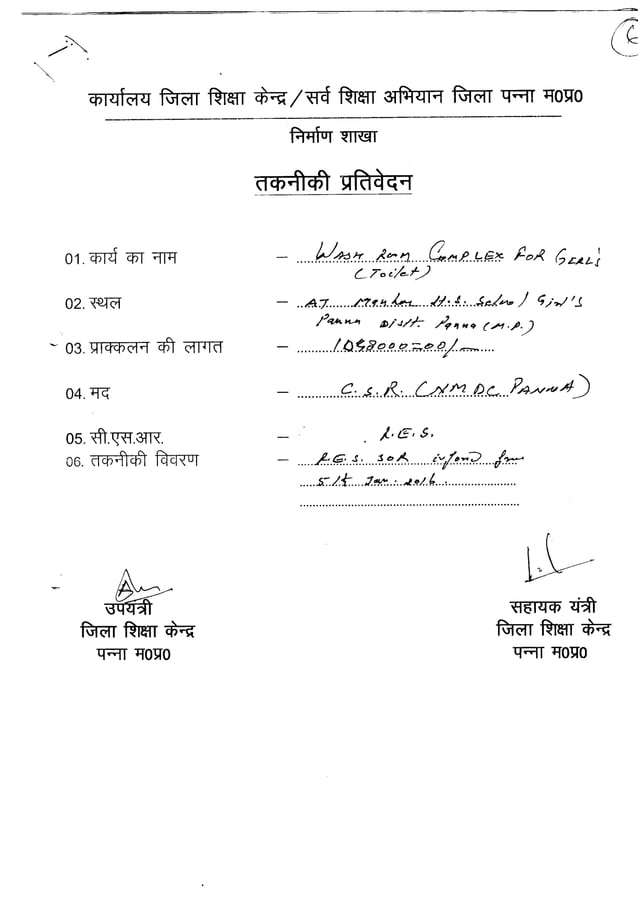 6
कार्यालय जिला शिक्षा केन्द्र/सर्व शिक्षा अभियान जिला पन्ना म0प्र0
निर्माण शाखा
तकनीकी प्रतिवेदन
01. कार्य का नाम – WASH ROOM COMPLEX FOR GERL'S
(Toilet)
02. स्थल – AT Manhar H.S. School Girl's
Panna Distt. Panna (M.P.)
03. प्राक्कलन की लागत – 1058000=00/-
04. मद – C.S.R. (NMDC PANNA)
05. सी.एस.आर. – R.E.S.
06. तकनीकी विवरण – R.E.S. SOR
5th Jan. 2016
उपयंत्री
जिला शिक्षा केन्द्र
पन्ना म0प्र0
सहायक यंत्री
जिला शिक्षा केन्द्र
पन्ना म0प्र0